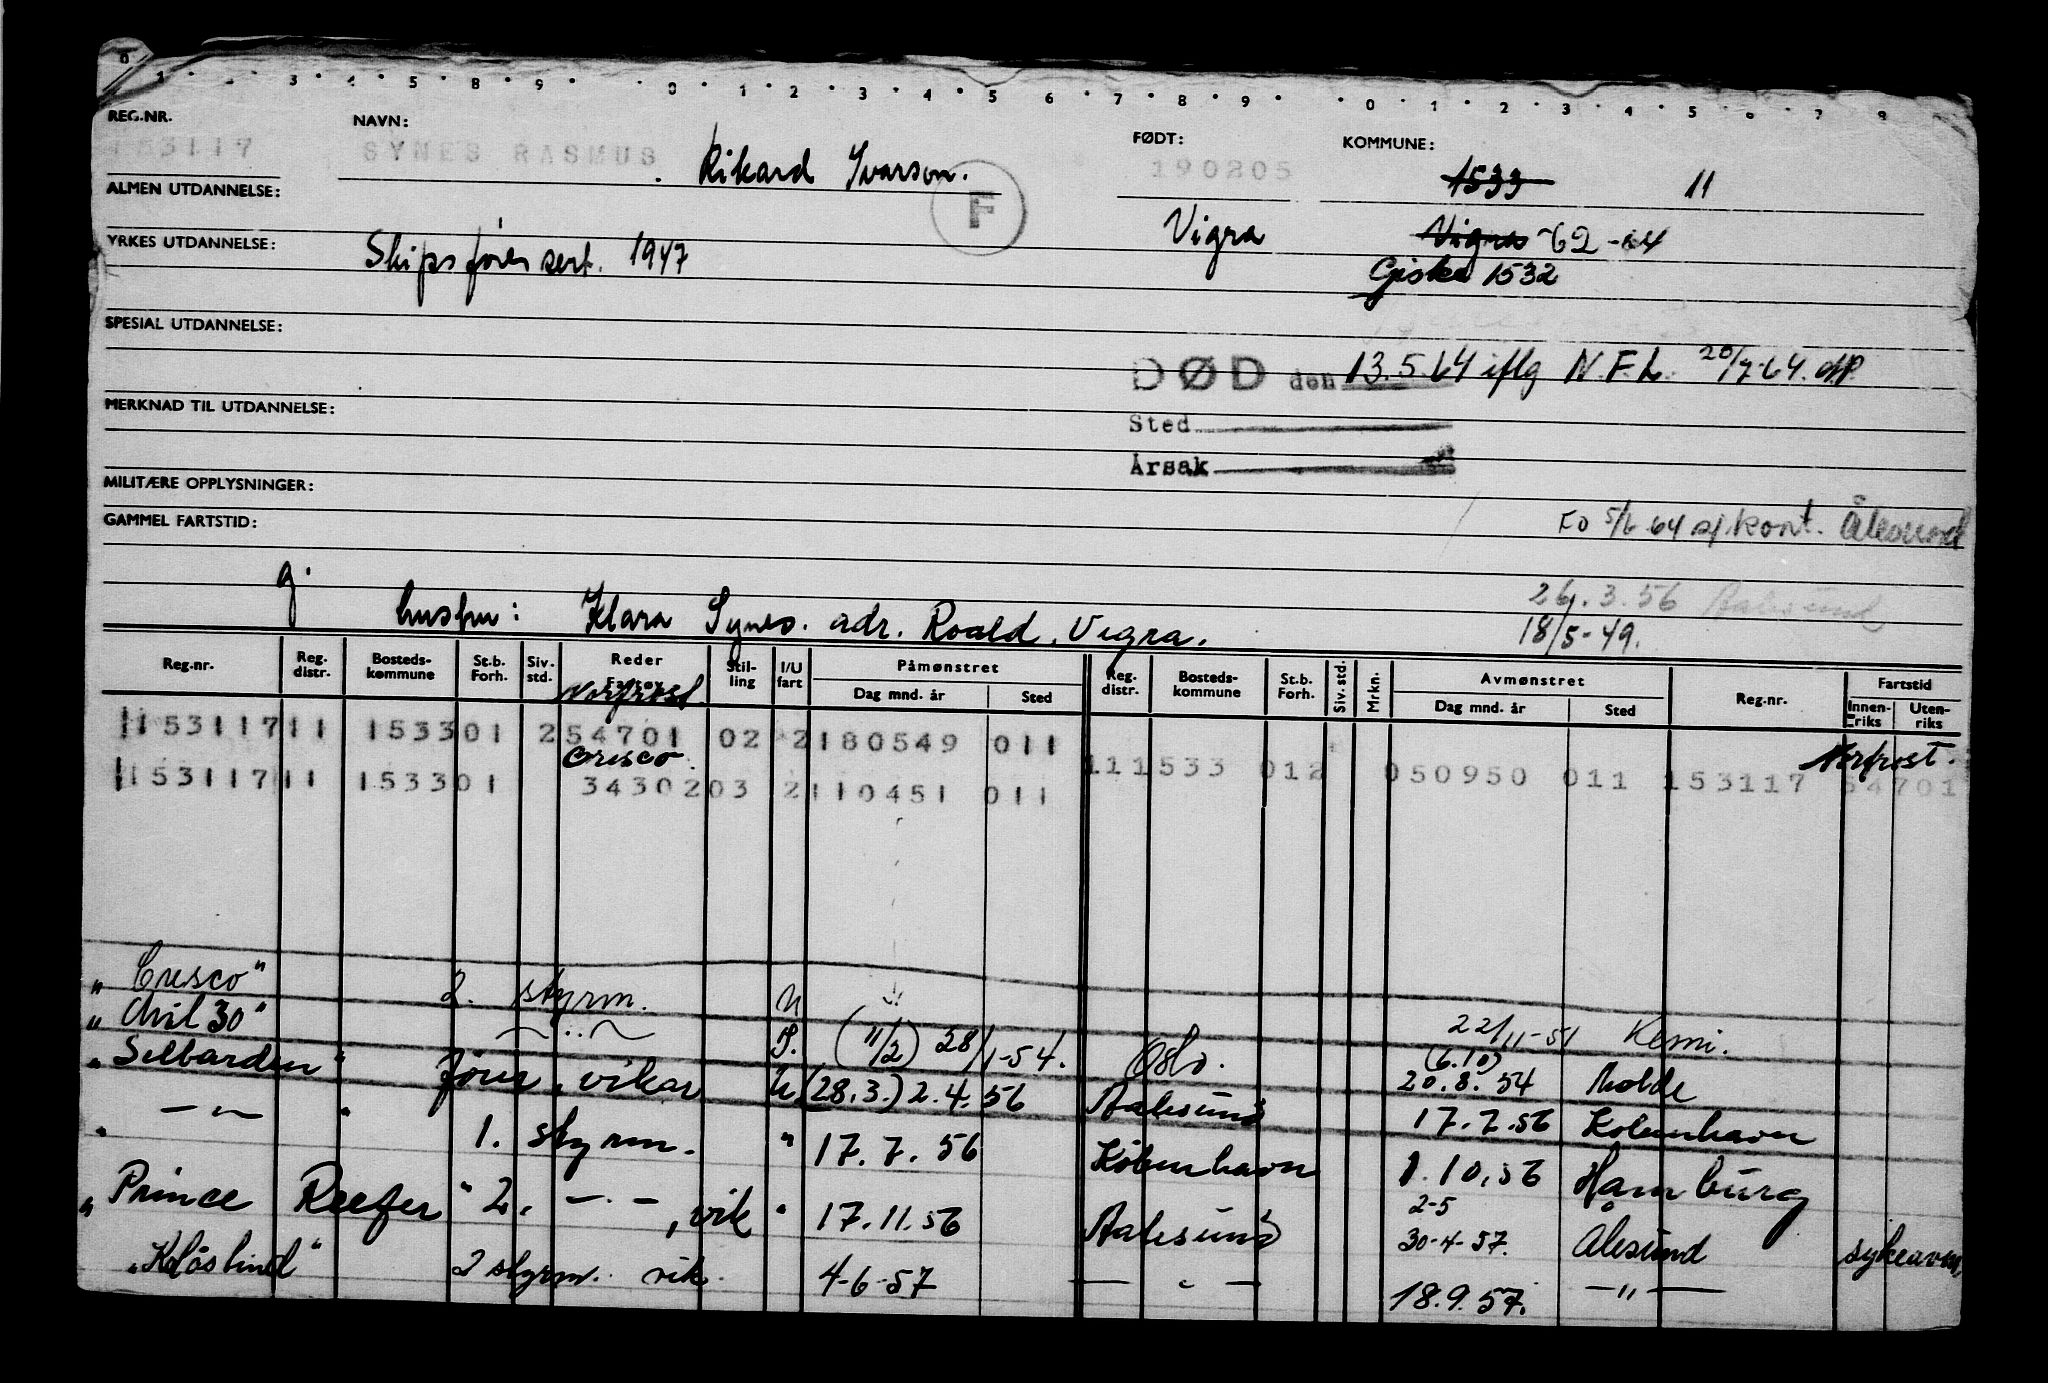 0 1 3 4 5 8 9 0 1 2 3 4 5 6 7 8 9 0 1 2 3 4 5 6 7 8
REG.NR. NAVN: FØDT: KOMMUNE:
153117 SYNES RASMUS. Rikard Ivarson. 190205 1533 11
ALMEN UTDANNELSE: F
Vigra Vigra -62-64
YRKES UTDANNELSE: Skipsfører sert. 1947
Giske 1532
SPESIAL UTDANNELSE:
DØD den 13.5.64 iflg N.F.L. 20/7-64.
MERKNAD TIL UTDANNELSE:
Sted
Årsak
MILITÆRE OPPLYSNINGER:
FO 5/6 64 sj kont. Ålesund
GAMMEL FARTSTID:
g.
26.3.56 Aalesund
hustru: Klara Synes. adr. Roald, Vigra. 18/5-49.
Reg.nr. Reg. distr. Bosteds-kommune St.b. Forh. Siv. std. Reder Fartøy Stil-ling I/U fart Påmønstret Reg. distr. Bosteds-kommune St.b. Forh. Siv. std. Mrkn. Avmønstret Reg.nr. Fartstid
Dag mnd. år Sted Dag mnd. år Sted Innen-riks Uten-riks
Norfrost
153117 11 1533 01 2 54701 02 2 180549 011
Norfrost.
Cresco.
11 1533 012 050950 011 153117 54701
153117 11 1533 01 34302 03 2 110451 011
"Cresco" 2. styrm. U 22/11-51 Kemi.
30" — " — (11/2) 28/1-54. Oslo. (6.10) 20.8.54 Molde
"Selbarden" fører, vikar U (28.3.) 2.4.56 Aalesund 17.7.56 København
" — " — " 1. styrm. " 17.7.56 København 1.10.56 Hamburg
"Prince Reefer" 2. — " —, vik " 17.11.56 Aalesund 2-5 30-4-57. Ålesund sykeavm.
"Klosbind" 2 styrm. vik. 4-6-57 — " — 18.9.57. — " —